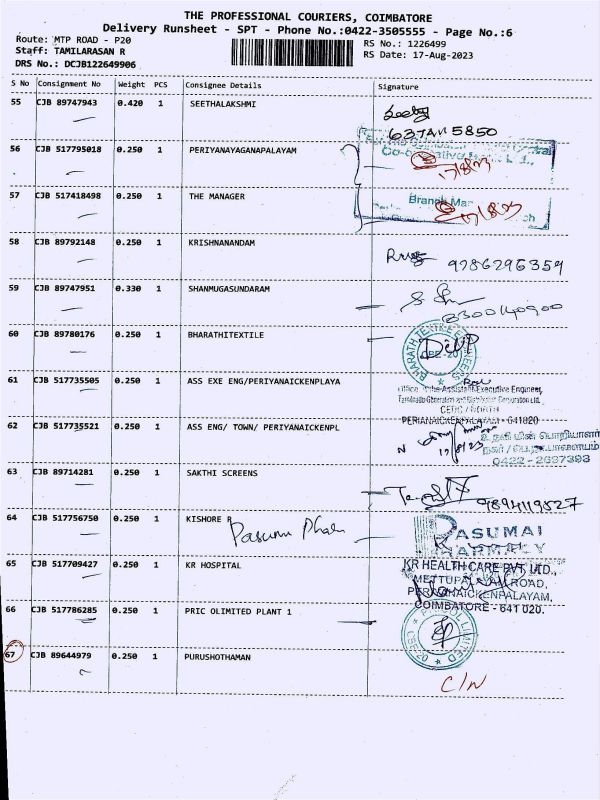 THE PROFESSIONAL COURIERS, COIMBATORE
Delivery Runsheet - SPT - Phone No.:0422-3505555 - Page No.:6
Route: MTP ROAD - P20
Staff: TAMILARASAN R
DRS No.: DCJB122649906
RS No.: 1226499
RS Date: 17-Aug-2023
S No Consignment No Weight PCS Consignee Details Signature
55 CJB 89747943 0.420 1 SEETHALAKSHMI
56 CJB 517795018 0.250 1 PERIYANAYAGANAPALAYAM
17/8/23
57 CJB 517418498 0.250 1 THE MANAGER
Branch
17/8/23
58 CJB 89792148 0.250 1 KRISHNANANDAM
9786296359
59 CJB 89747951 0.330 1 SHANMUGASUNDARAM
60 CJB 89780176 0.250 1 BHARATHITEXTILE
CBE-20
61 CJB 517735505 0.250 1 ASS EXE ENG/PERIYANAICKENPLAYA
Office of the Assistant Executive Engineer,
PERIANAICKENPALAYAM - 641020
62 CJB 517735521 0.250 1 ASS ENG/ TOWN/ PERIYANAICKENPL
உதவி மின் பொறியாளர்
17/8/23
0422-2697393
63 CJB 89714281 0.250 1 SAKTHI SCREENS
9894119527
64 CJB 517756750 0.250 1 KISHORE R
PASUMAI
PHARMACY
65 CJB 517709427 0.250 1 KR HOSPITAL
KR HEALTH CARE PVT. LTD.,
METTUPALAYAM ROAD,
PERIYANAICKENPALAYAM,
COIMBATORE - 641 020.
66 CJB 517786285 0.250 1 PRIC OLIMITED PLANT 1
PRICOL LIMITED
CBE-20
67 CJB 89644979 0.250 1 PURUSHOTHAMAN
C/N